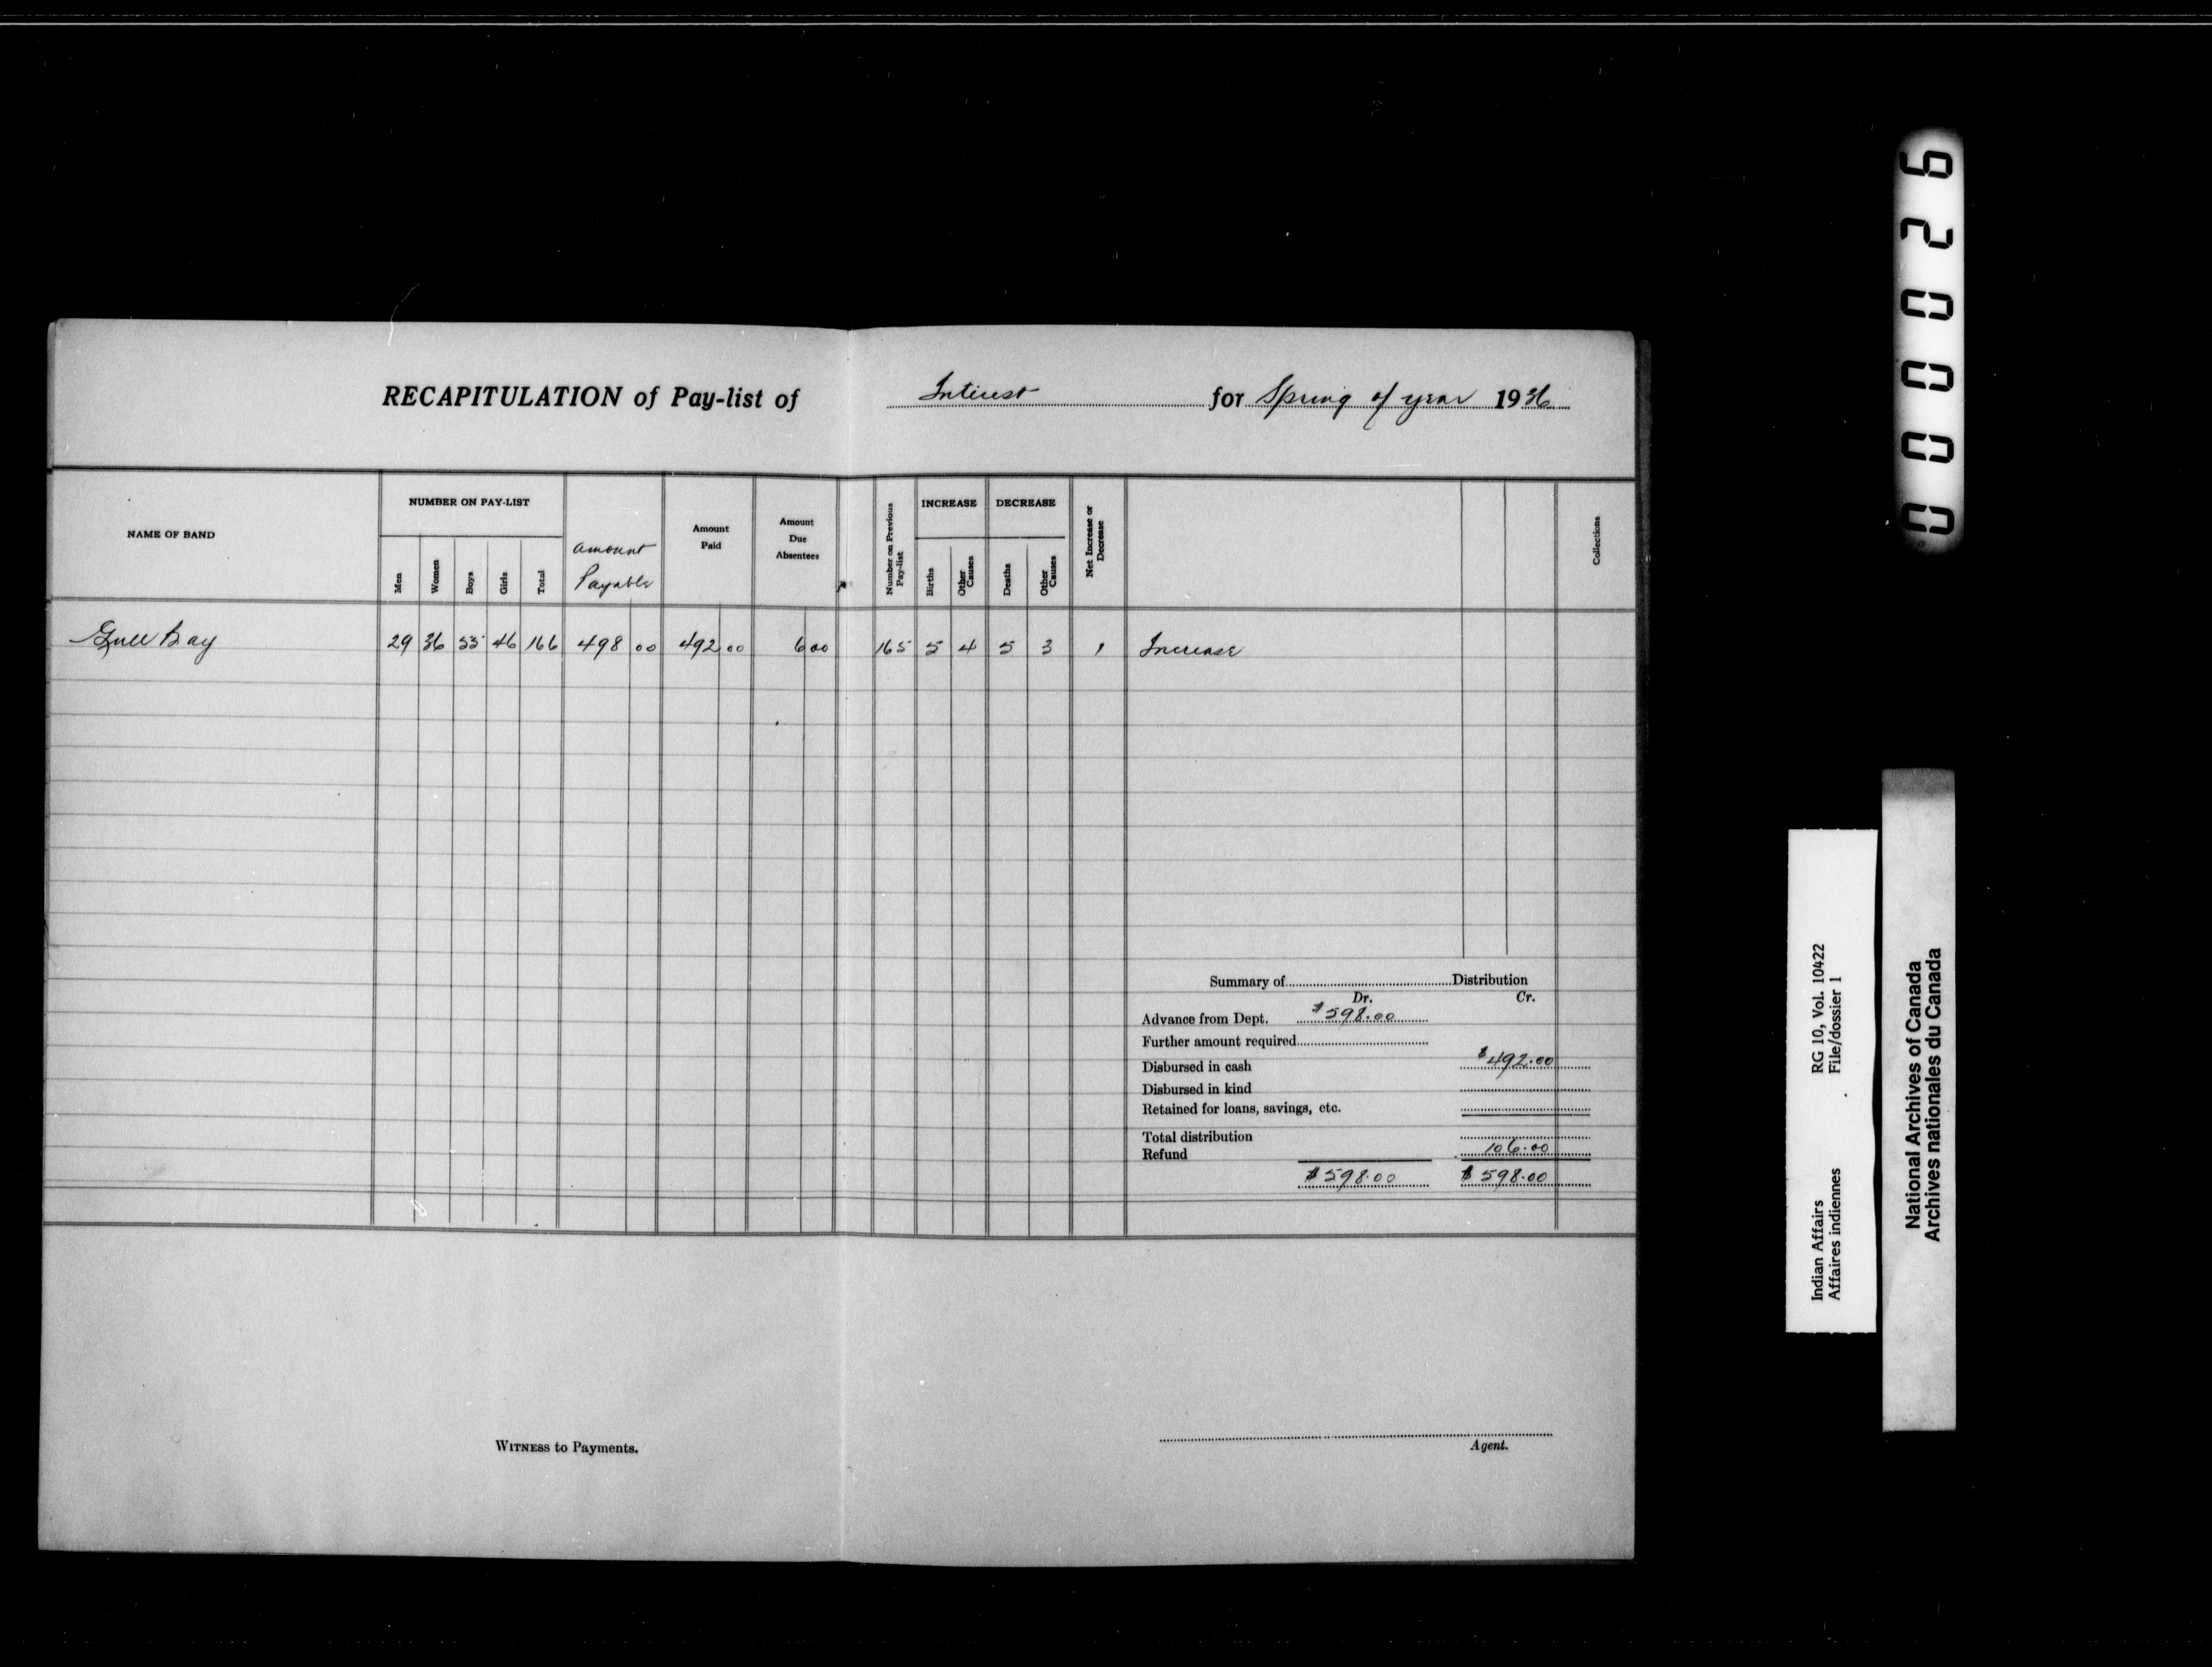 RECAPITULATION of Pay-list of Interest for Spring of year 1936
NAME OF BAND
NUMBER ON PAY-LIST
Men
Women
Boys
Girls
Total
Amount
Payable
Amount
Paid
Amount
Due
Absentees
Number on Previous
Pay-list
INCREASE
Births
Other
Causes
DECREASE
Deaths
Other
Causes
Net Increase or
Decrease
Collections
Gull Bay 29 36 55 46 166 498 00 492 00 6 00 165 5 4 5 3 1 Increase
Summary of Distribution
Dr. Cr.
Advance from Dept. $598.00
Further amount required
Disbursed in cash $492.00
Disbursed in kind
Retained for loans, savings, etc.
Total distribution
Refund 106.00
$598.00 $598.00
WITNESS to Payments.
Agent.
000026
Indian Affairs RG 10, Vol. 10422
Affaires indiennes File/dossier 1
National Archives of Canada
Archives nationales du Canada